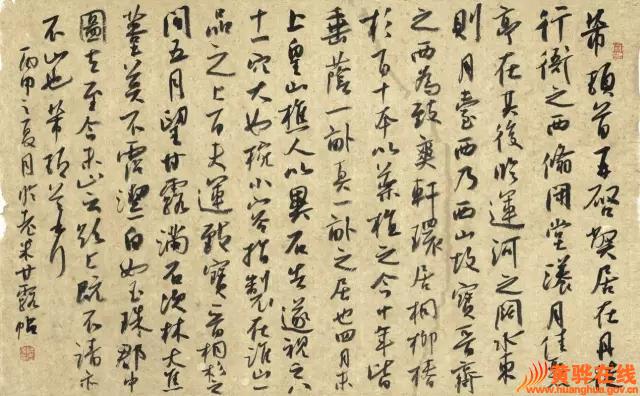 芾頓首再啓弊居在丹徒
行衙之西翛閑堂漾月佳麗
亭在其後臨運河之闊水東
則月臺西乃西山故寶晉齋
之西為致爽軒環居桐柳椿
杉百十本以藥植之今十年皆
垂蔭一畝真一畝之居也四月末
上皇山樵人以異石告遂視之八
十一穴大如碗小容指製在淮山一
品之上百夫運致寶晉桐杉之
間五月望甘露滿石次林木焦
葦莫不霑潔白如玉珠郡中
圖去至今未止云欲上既不請亦
不止也芾頓首
丙申之夏月臨老米甘露帖
黄骅在线
huanghua.gov.cn